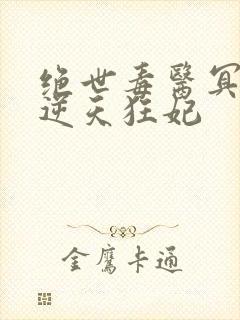 绝世毒醫冥
逆天狂妃
金鷹卡通